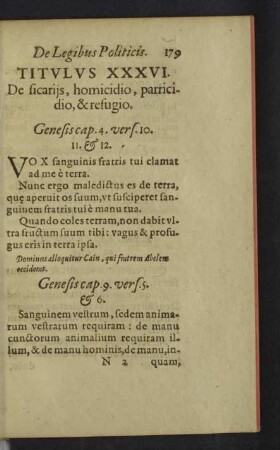 De Legibus Politicis. 179
TITVLVS XXXVI.
De sicarijs, homicidio, parrici-
dio, & refugio.
Genesis cap. 4. vers. 10.
11. & 12.
VOX sanguinis fratris tui clamat
ad me è terra.
Nunc ergo maledictus es de terra,
quę aperuit os suum, vt susciperet san-
guinem fratris tui è manu tua.
Quando coles terram, non dabit vl-
tra fructum suum tibi: vagus & profu-
gus eris in terra ipsa.
Dominus alloquitur Cain, qui fratrem Abelem
occiderat.
Genesis cap. 9. vers. 5.
& 6.
Sanguinem vestrum, sedem anima-
rum vestrarum requiram: de manu
cunctorum animalium requiram il-
lum, & de manu hominis, de manu, in-
N 2 quam,